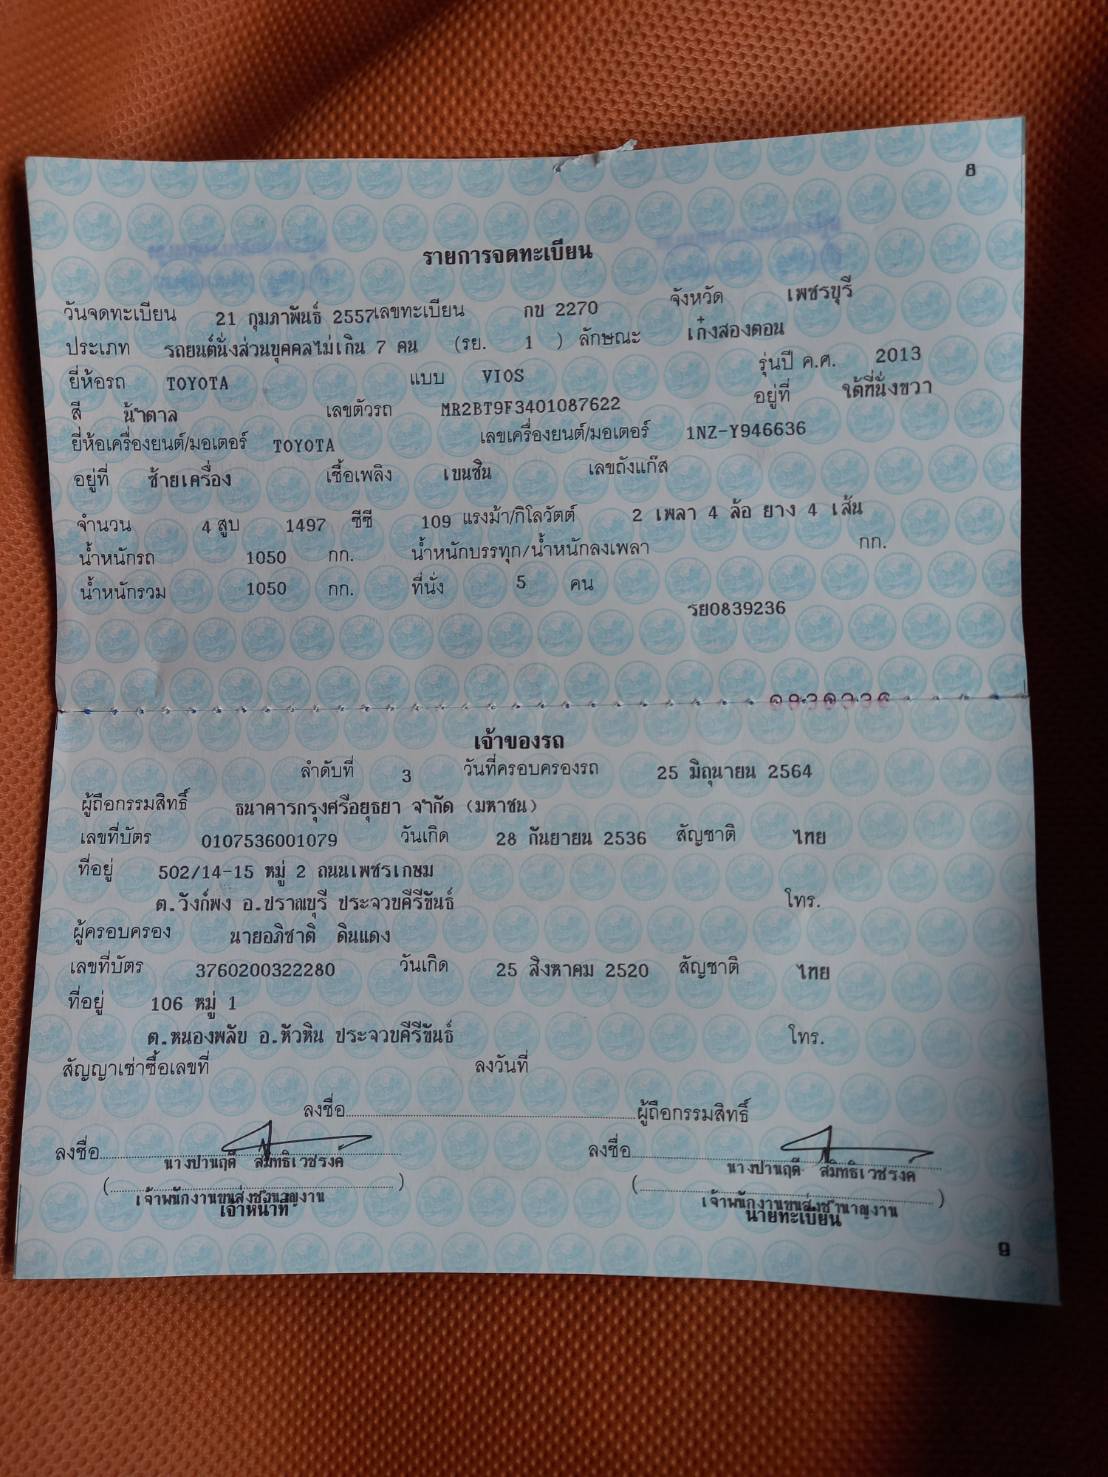 8
รายการจดทะเบียน
วันจดทะเบียน 21 กุมภาพันธ์ 2557 เลขทะเบียน กข 2270 จังหวัด เพชรบุรี
ประเภท รถยนต์นั่งส่วนบุคคลไม่เกิน 7 คน (รย. 1 ) ลักษณะ เก๋งสองตอน
ยี่ห้อรถ TOYOTA แบบ VIOS รุ่นปี ค.ศ. 2013
สี น้ำตาล เลขตัวรถ MR2BT9F3401087622 อยู่ที่ ใต้ที่นั่งขวา
ยี่ห้อเครื่องยนต์/มอเตอร์ TOYOTA เลขเครื่องยนต์/มอเตอร์ 1NZ-Y946636
อยู่ที่ ซ้ายเครื่อง เชื้อเพลิง เบนซิน เลขถังแก๊ส
จำนวน 4 สูบ 1497 ซีซี 109 แรงม้า/กิโลวัตต์ 2 เพลา 4 ล้อ ยาง 4 เส้น
น้ำหนักรถ 1050 กก. น้ำหนักบรรทุก/น้ำหนักลงเพลา กก.
น้ำหนักรวม 1050 กก. ที่นั่ง 5 คน
รย0839236
เจ้าของรถ
ลำดับที่ 3 วันที่ครอบครองรถ 25 มิถุนายน 2564
ผู้ถือกรรมสิทธิ์ ธนาคารกรุงศรีอยุธยา จำกัด (มหาชน)
เลขที่บัตร 0107536001079 วันเกิด 28 กันยายน 2536 สัญชาติ ไทย
ที่อยู่ 502/14-15 หมู่ 2 ถนนเพชรเกษม
ต.วังก์พง อ.ปราณบุรี ประจวบคีรีขันธ์ โทร.
ผู้ครอบครอง นายอภิชาติ ดินแดง
เลขที่บัตร 3760200322280 วันเกิด 25 สิงหาคม 2520 สัญชาติ ไทย
ที่อยู่ 106 หมู่ 1
ต.หนองพลับ อ.หัวหิน ประจวบคีรีขันธ์ โทร.
สัญญาเช่าซื้อเลขที่ ลงวันที่
ลงชื่อ ผู้ถือกรรมสิทธิ์
ลงชื่อ ลงชื่อ
นางปานฤดี สมิทธิเวชรงค์ นางปานฤดี สมิทธิเวชรงค์
( ) ( )
เจ้าพนักงานขนส่งชำนาญงาน เจ้าพนักงานขนส่งชำนาญงาน
เจ้าหน้าที่ นายทะเบียน
9